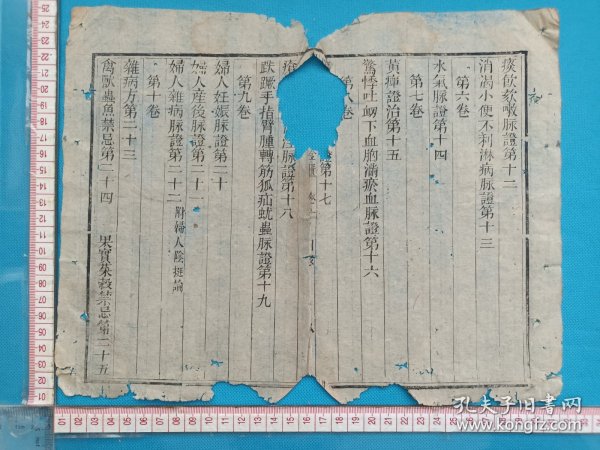 痰飲欬嗽脉證第十二
消渴小便不利淋病脉證第十三
第六卷
水氣脉證第十四
第七卷
黃癉證治第十五
驚悸吐衂下血胸滿瘀血脉證第十六
第八卷
第十七
脉證第十八
趺蹶手指臂腫轉筋狐疝蚘蟲脉證第十九
第九卷
婦人妊娠脉證第二十
婦人産後脉證第二十
婦人雜病脉證第二十二 附婦人陰挺論
第十卷
雜病方第二十三
禽獸蟲魚禁忌第二十四 果實菜穀禁忌第二十五
孔夫子旧书网
www.kongfz.com